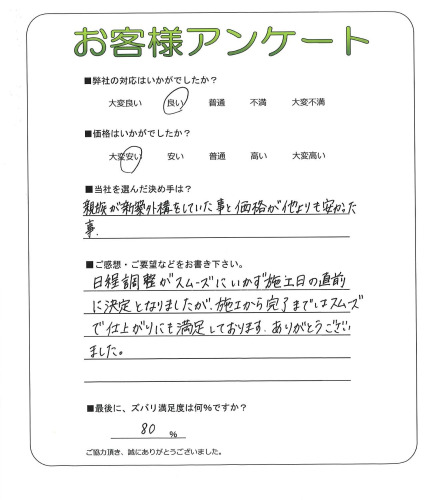 お客様アンケート
■弊社の対応はいかがでしたか?
大変良い 良い 普通 不満 大変不満
■価格はいかがでしたか?
大変安い 安い 普通 高い 大変高い
■当社を選んだ決め手は?
親族が新築外構をしていた事と価格が他よりも安かった
事。
■ご感想・ご要望などをお書き下さい。
日程調整がスムーズにいかず施工日の直前
に決定となりましたが、施工から完了まではスムーズ
で仕上がりにも満足しております。ありがとうござい
ました。
■最後に、ズバリ満足度は何%ですか?
80 %
ご協力頂き、誠にありがとうございました。